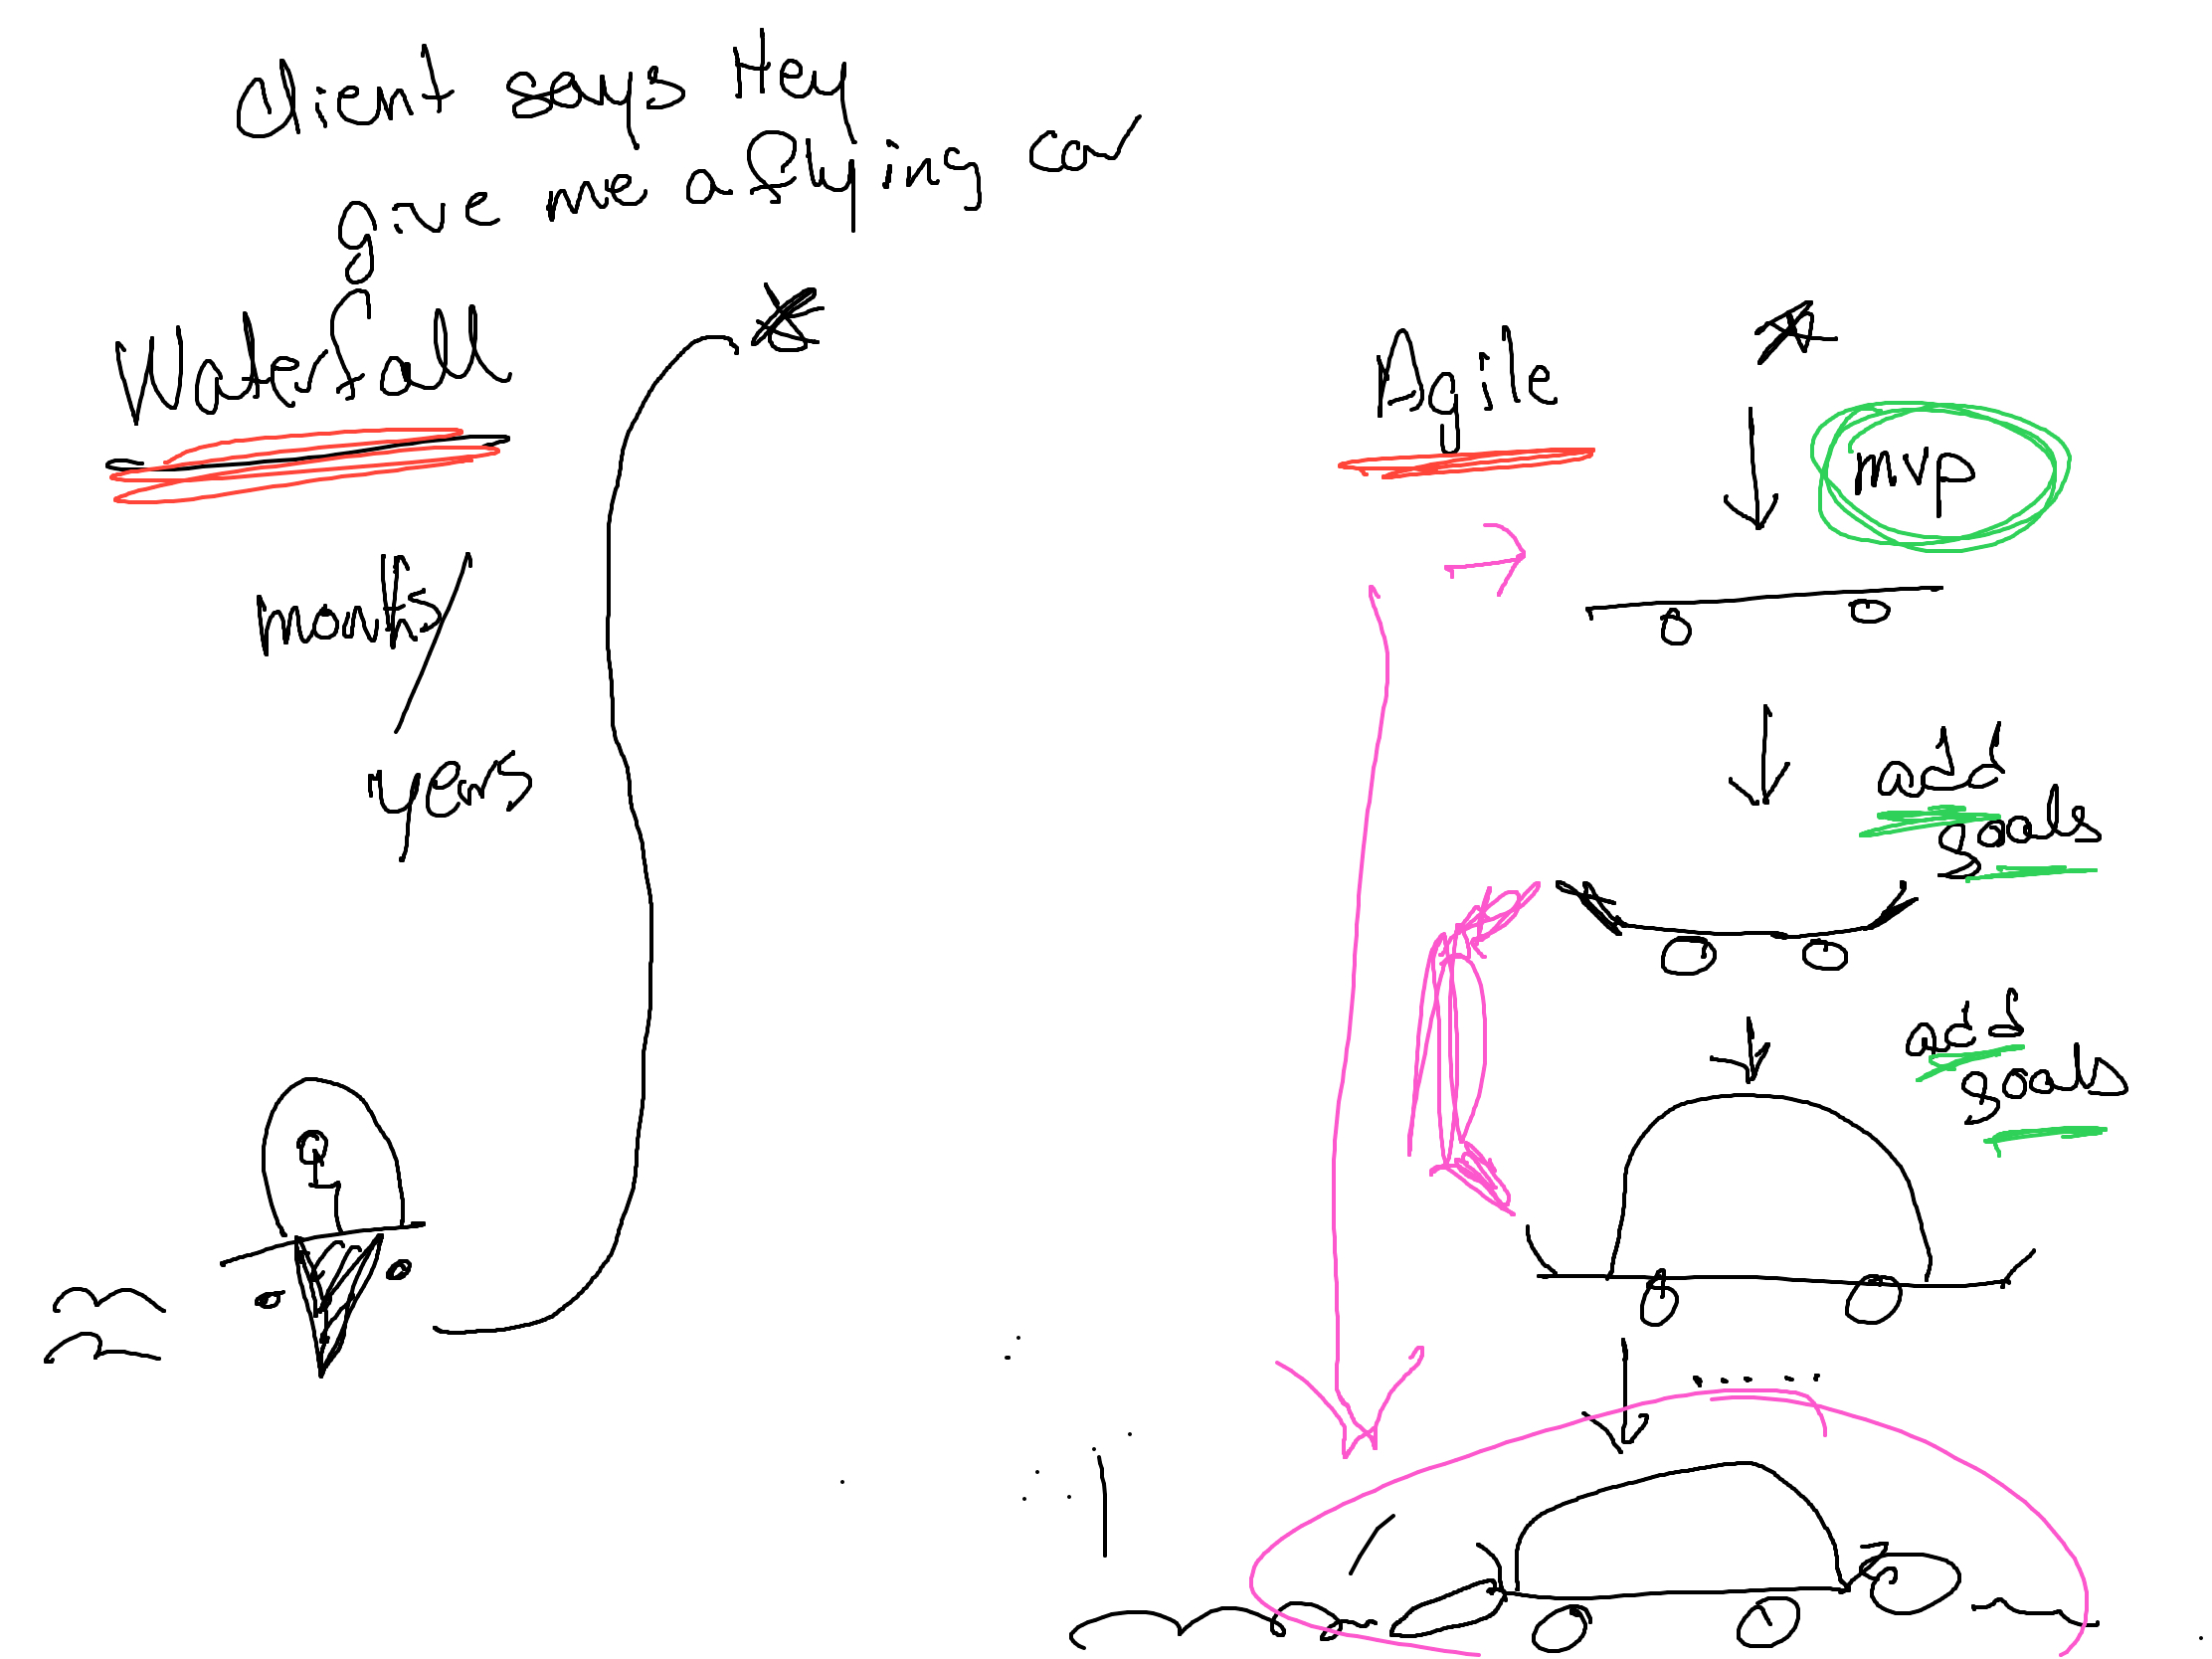 client says Hey
give me a flying car
Waterfall
months/
years
Agile
mvp
add
goals
add
goals